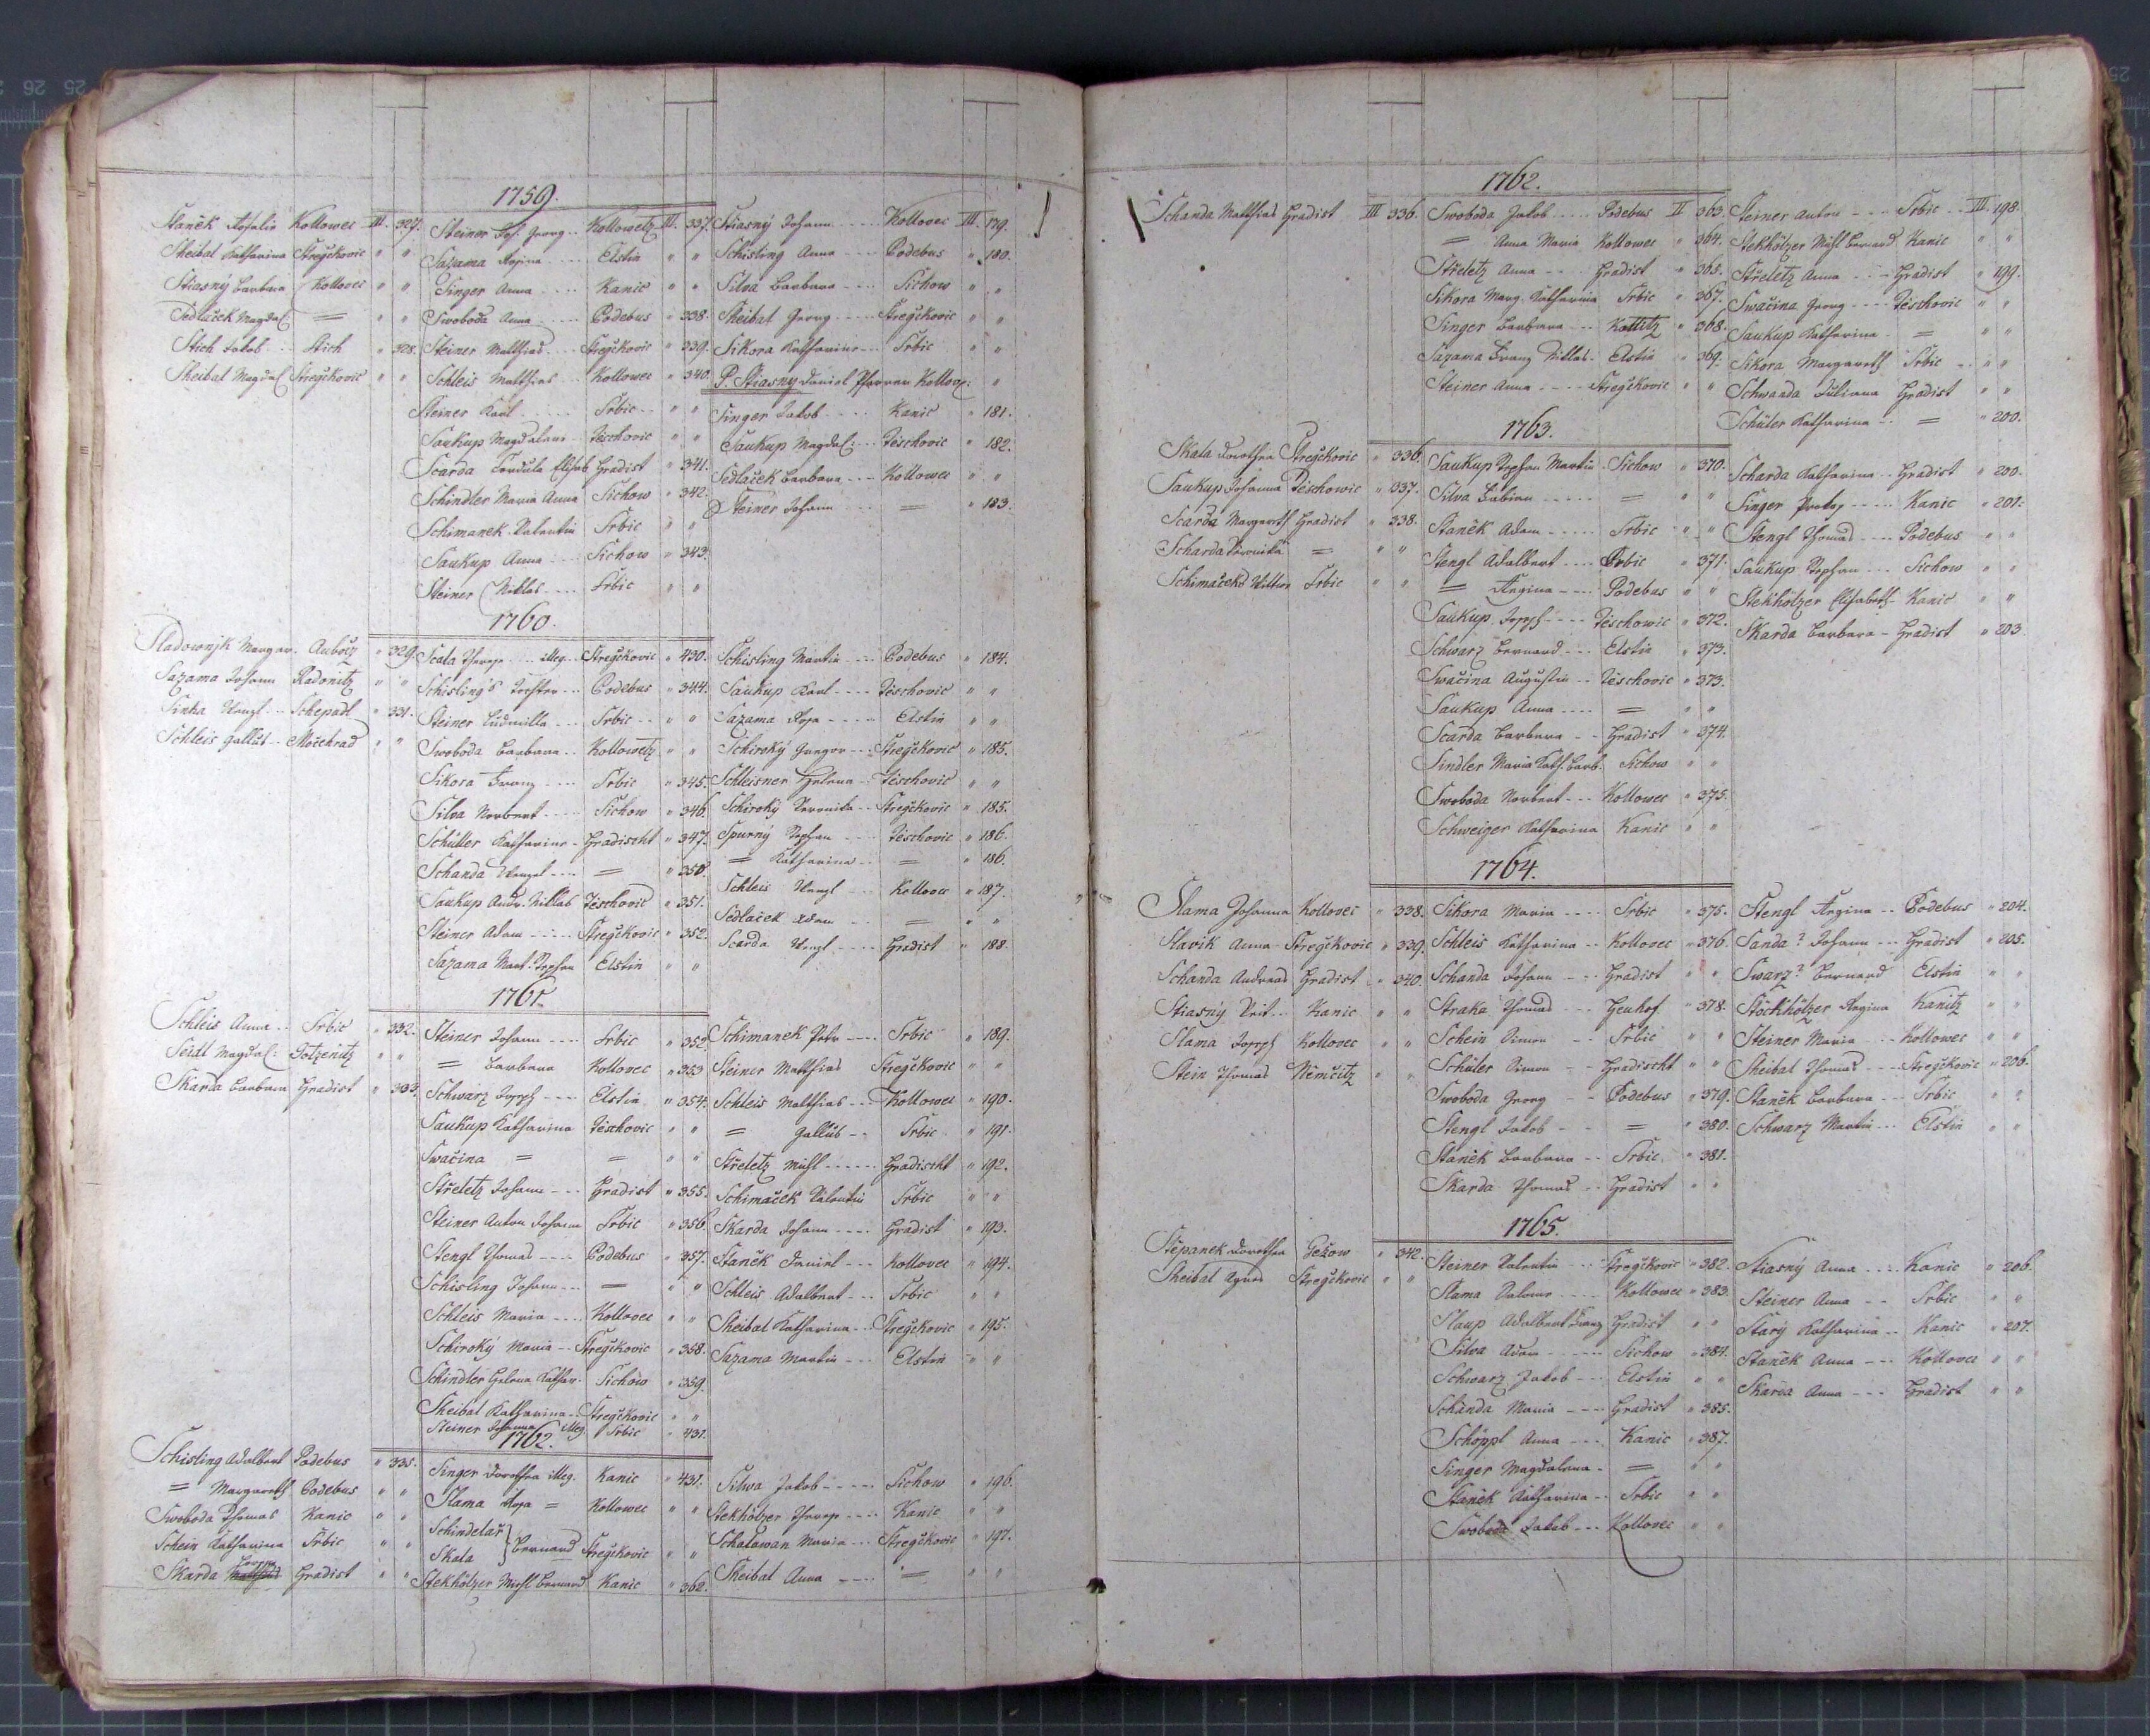 1759.
Stanĕk Rosalia Kollowec III. 327.
Skeibal Katharina Stręžkovic " "
Stiasnÿ Barbara Kollovec " "
Sedlaček Magdal: = " "
Stich Jakob Stich " 328.
Skeibal Magdal: Stręžkovic " "
Steiner Jos. Georg Kollowetz II. 337.
Sazama Regina Elstin " "
Singer Anna Kanic " "
Swoboda Anna Podebus " 338.
Steiner Matthias Stręžkovic " 339.
Schleis Matthias Kollowec " 340.
Steiner Karl Srbic " "
Saukup Magdalena Teschovic " "
Scarda Cordula Elisab. Gradist " 341.
Schindler Maria Anna Sichow " 342.
Schimanek Valentin Srbic " "
Saukup Anna Sichow " 343.
Steiner Niklas Srbic " "
Stiasnÿ Johann Kollovec III. 179.
Schisling Anna Podebus " 180.
Silva Barbara Sichow " "
Skeibal Georg Stręžkovic " "
Sikora Katharina Srbic " "
P. Stiasny Daniel Pfarrer Kollow: "
Singer Jakob Kanic " 181.
Saukup Magdal: Teschovic " 182.
Sedlaček Barbara Kollowec " "
Steiner Johann = " 183.
1760.
Sladownjk Margar. Auboč " 329.
Sazama Johann Radonitz " "
Sinka Wenzl Schepadl " 331.
Schleis Gallus Močehrad " "
Scala Theres. illeg. Stręžkovic " 430.
Schisling's Tochter Podebus " 344.
Steiner Ludmilla Srbic " "
Swoboda Barbara Kollowetz " "
Sikora Franz Srbic " 345.
Silva Norbert Sichow " 346.
Schüller Katharina Gradischt " 347.
Schanda Wenzel = " 350.
Saukup Andr. Niklas Teschovic " 351.
Steiner Adam Stręžkovic " 352.
Sazama Mart. Stephan Elstin " "
Schisling Martin Podebus " 184.
Saukup Karl Teschovic " "
Sazama Rosa Elstin " "
Schiroký Gregor Stręžkovic " 185.
Schleisner Helena Teschovic " "
Schiroký Veronika Stręžkovic " 185.
Spurný Stephan Teschovic " 186.
= Katharina = " 186.
Schleis Wenzl Kollovec " 187.
Sedlaček Adam = " "
Scarda Wenzl Gradist " 188.
1761.
Schleis Anna Srbic " 332.
Seidl Magdal: Totzenitz " "
Skarda Barbara Gradist " 333.
Steiner Johann Srbic " 352.
= Barbara Kollovec " 353
Schwarz Joseph Elstin " 354.
Saukup Katharina Teschovic " "
Swačina = = " "
Střeletz Johann Gradist " 355.
Steiner Anton Johann Srbic " 356.
Stengl Thomas Podebus " 357.
Schisling Johann = " "
Schleis Maria Kollovec " "
Schiroký Maria Stręžkovic " 358.
Schindler Helena Kathar. Sichow " 359.
Skeibal Katharina Stręžkovic " "
Steiner Johanna illeg. Srbic " 431.
Schimanek Petr Srbic " 189.
Steiner Matthias Stręžkovic " "
Schleis Matthias Kollowec " 190.
= Gallus Srbic " 191.
Střeletz Michl Gradischt " 192.
Schimaček Valentin Srbic " "
Skarda Johann Gradist " 193.
Stanĕk Daniel Kollovec " 194.
Schleis Adalbert Srbic " "
Skeibal Katharina Stręžkovic " 195.
Sazama Martin Elstin " "
1762.
Schisling Adalbert Podebus " 335.
= Margareth Podebus " "
Swoboda Thomas Kanic " "
Schein Katharina Srbic " "
Skarda Gradist " "
Singer Dorothea illeg. Kanic " 431.
Slama Rosa = Kollowec " "
Schindelař
Skala } Bernard Stręžkovic " "
Stekhölzer Michl Bernard Kanic " 362.
Silva Jakob Sichow " 196.
Stekhölzer Theres. Kanic " "
Schalawan Maria Stręžkovic " 197.
Skeibal Anna = " "
1762.
Schanda Matthias Gradist III 336.
Swoboda Jakob Podebus II 363.
= Anna Maria Kollowec " 364.
Střeletz Anna Gradist " 365.
Sikora Marg. Katharina Srbic " 367.
Singer Barbara Kottitz " 368.
Sazama Franz Niklas Elstin " 369.
Steiner Anna Stręžkovic " "
Steiner Anton Srbic III. 198.
Stekhölzer Michl Bernard Kanic " "
Střeletz Anna Gradist " 199.
Swačina Georg Teschovic " "
Saukup Katharina = " "
Sikora Margareth Srbic " "
Schwanda Juliana Gradist " "
Schüler Katharina = " 200.
1763.
Skala Dorothea Stręžkovic " 336.
Saukup Johanna Teschowic " 337.
Scarda Margareth Gradist " 338.
Scharda Veronika = " "
Schimačeks Wittwe Srbic " "
Saukup Stephan Martin Sichow " 370.
Silva Fabian = " "
Stanĕk Adam Srbic " "
Stengl Adalbert Srbic " 371.
= Regina Podebus " "
Saukup Joseph Teschowic " 372.
Schwarz Bernard Elstin " 373.
Swačina Augustin Teschovic " 373.
Saukup Anna = " "
Scarda Barbara Gradist " 374.
Sindler Maria Kath. Barb. Sichow " "
Swoboda Norbert Kollowec " 375.
Schweiger Katharina Kanic " "
Scharda Katharina Gradist " 200.
Singer Prokop Kanic " 201.
Stengl Thomas Podebus " "
Saukup Stephan Sichow " "
Stekhölzer Elisabeth Kanic " "
Skarda Barbara Gradist " 203
1764.
Slama Johanna Kollovec " 338.
Slavik Anna Stręžkovic " 339.
Schanda Andreas Gradist " 340.
Stiasný Veit Kanic " "
Slama Joseph Kollovec " "
Stein Thomas Němčitz " "
Sikora Maria Srbic " 375.
Schleis Katharina Kollovec " 376.
Schanda Johann Gradist " "
Straka Thomas Heuhof " 378.
Schein Simon Srbic " "
Schüler Simon Gradischt " "
Swoboda Georg Podebus " 379.
Stengl Jakob = " 380.
Stanĕk Barbara Srbic " 381.
Skarda Thomas Gradist " "
Stengl Regina Podebus " 204.
Sanda? Johann Gradist " 205.
Swarz? Bernard Elstin " "
Stöckhölzer Regina Kanitz " "
Steiner Maria Kollowec " "
Skeibal Thomas Stręžkovic " 206.
Stanĕk Barbara Srbic " "
Schwarz Martin Elstin " "
1765.
Stĕpanek Dorothea Gežow " 342.
Skeibal Agnes Stręžkovic " "
Steiner Valentin Stręžkovic " 382.
Slama Salome Kollowec " 383.
Slaup Adalbert Franz Gradist " "
Silva Adam Sichow " 384.
Schwarz Jakob Elstin " "
Schanda Maria Gradist " 385.
Schöppl Anna Kanic " 387.
Singer Magdalena = " "
Stanĕk Katharina Srbic " "
Swoboda Jakob Kollovec " "
Stiasný Anna Kanic " 206.
Steiner Anna Srbic " "
Starý Katharina Kanic " 207.
Stanĕk Anna Kollovec " "
Skarda Anna Gradist " "